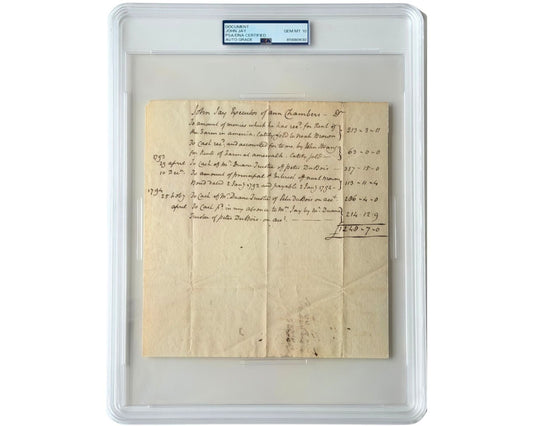 DOCUMENT
JOHN JAY
PSA/DNA CERTIFIED
AUTO GRADE
GEM MT 10
John Jay Executor of Ann Chambers — Dr
To amount of monies which he has recd. for Rent of
the Farm in amenia. Lately sold to Noah Brown 213 - 3 - 0
To Cash recd. and accounted for to me by John
for Rents of Farm at amewalk. Lately sold 63 - 0 - 0
1793
25 april To Cash of Mr. Duane Trustee of peter DuBois 357 - 15 - 0
10 Decr. To amount of principal & Interest of
Bond dated 2 Jany 1792 and payable 2 Jany 1792 — 113 - 11 - 4
1794
To Cash of Mr. Duane Trustee of Peter DuBois on acct. 286 - 4 - 0
april To Cash pd. in my absence to Mrs. Jay by Mr. Duane
Trustee of peter DuBois — on acct. — 214 - 12 - 9
£1248 - 7 - 0